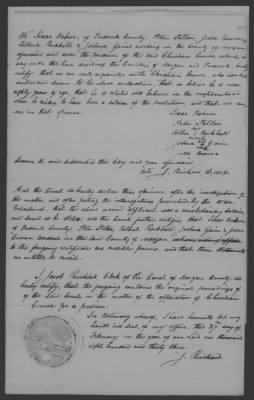 We Isaac Bohrer, of Frederick County; Peter Stotler, Jesse Cromer
Tolbert Rockhold & Joshua Garvis residing in the County of Morgan
aforesaid and near the residence of the said Christian Crouse, which is
very near the line dividing the Counties of Morgan and Frederick hereby
certify, that we are well acquainted with Christian Crouse, who has sub
scribed and sworn to the above declaration, that we believe he is near
eighty years of age, that he is reputed and believed in the neighborhood
where he resides to have been a soldier of the revolution, and that we con
cur in that opinion.
Isaac Bohrer
Peter Stotler
Sworn to and subscribed this day and year aforesaid
Teste J. Rischard, Clk
And the Court do hereby declare their opinion, after the investigation of
the matter, and after putting the interrogatories prescribed by the War
Department, that the above named applicant was a revolutionary soldier
and served as he states; and the Court further certifies that Isaac Bohrer
of Frederick County; Peter Stotler, Tolbert Rockhold, Joshua
Cromer resident in the said County of Morgan,
to the foregoing certificate are credible persons, and that their statement is
entitled to credit.
I Jacob Rischard Clerk of the Court of Morgan County, do
hereby certify, that the foregoing contains the original proceedings of
of the said Court in the matter of the application of Christian
Crouse for a pension.
In testimony whereof, I have hereunto set my
hand and seal of my office, this 27th day of
February in the year of our Lord one thousand
eight hundred and thirty three.
J. Rischard